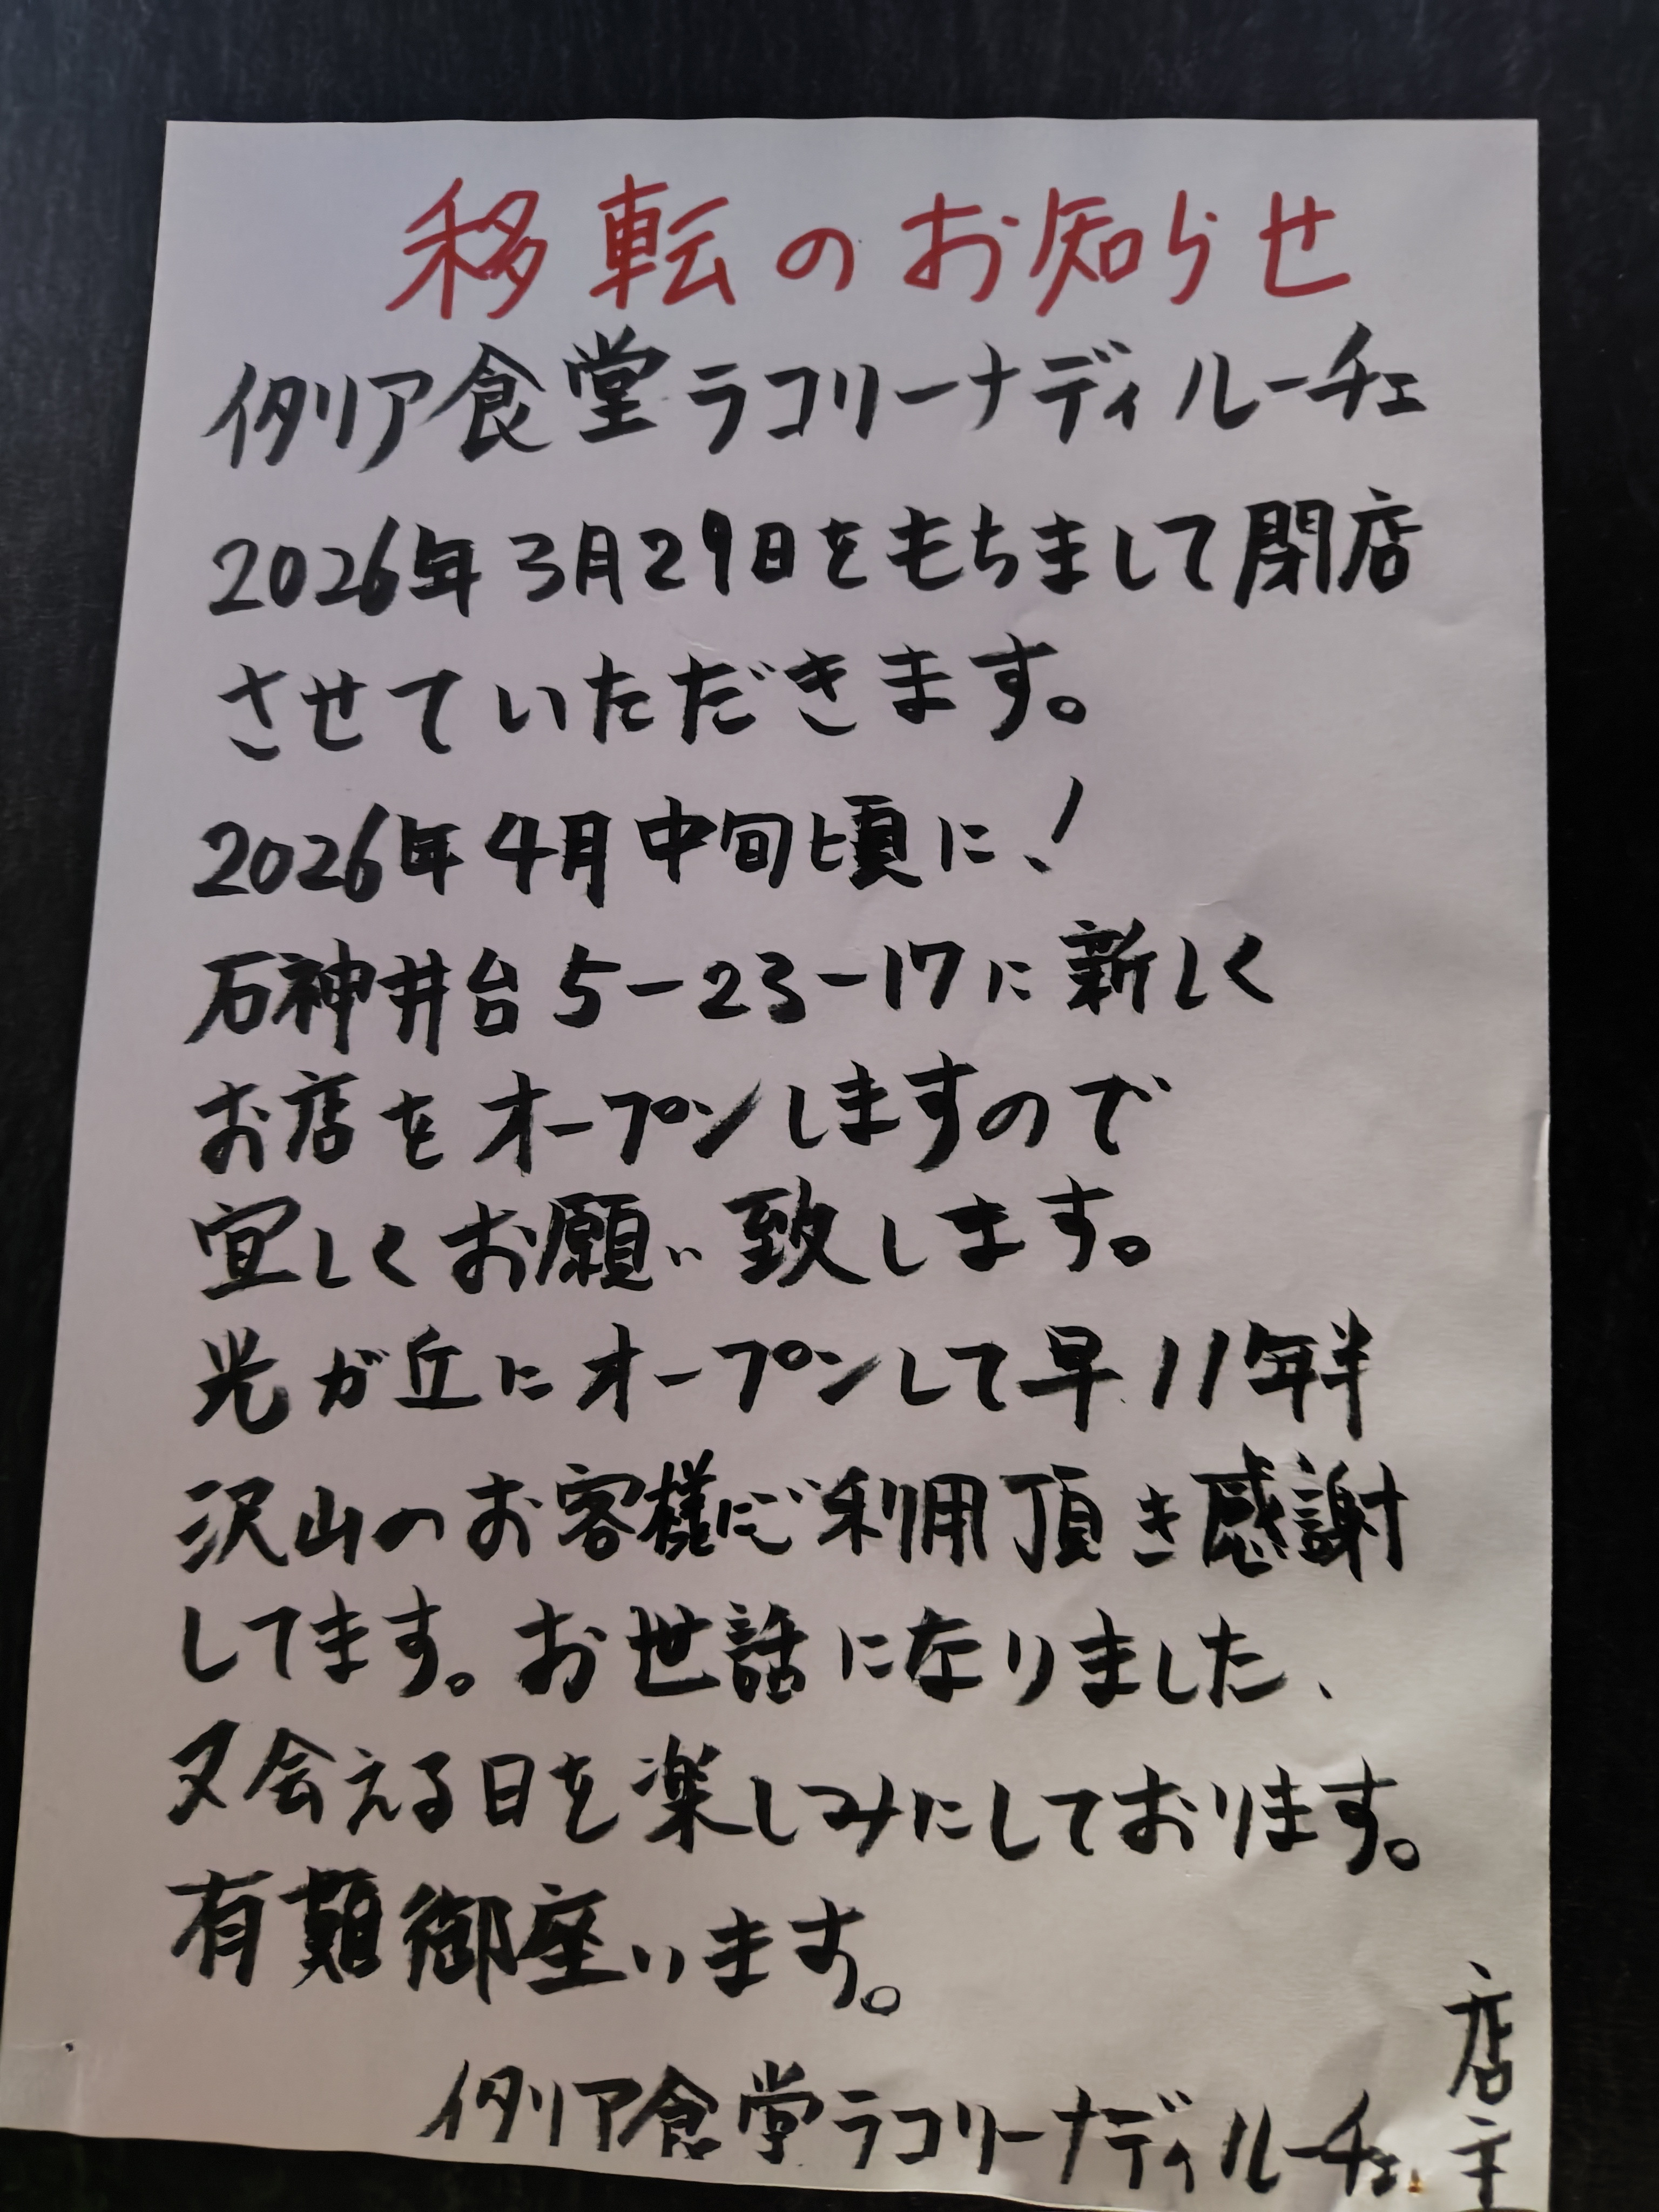 移転のお知らせ
イタリア食堂ラコリーナディルーチェ
2026年3月29日をもちまして閉店
させていただきます。
2026年4月中旬頃に!
石神井台5-23-17に新しく
お店をオープンしますので
宜しくお願い致します。
光が丘にオープンして早11年半
沢山のお客様にご利用頂き感謝
してます。お世話になりました、
又会える日を楽しみにしております。
有難御座います。
イタリア食堂ラコリーナディルーチェ
店主